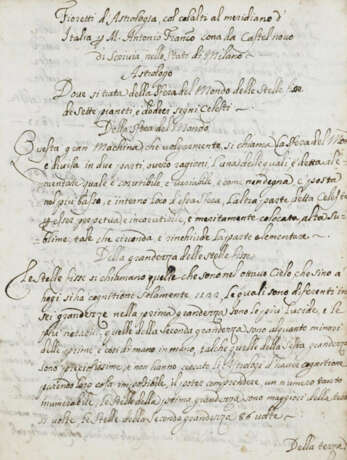 Fioretti d'Astrologia, col calcolti al meridiano d'
Italia, p M. Antonio Franco da Castel novo
di Scrivia nello Stato di Milano
Astrologo
Dove si trata della Sfera del Mondo delle Stelle fisse
de sette pianeti e dodeci segni Celesti
Della Sfera del Mondo
Questa gran Machina che volgarmente si chiama la Sfera del Mon
è divisa in due parti, overo ragioni. L'una delle quali è detta ele
mentale quale è corutibile, e variabile, e com' men degna è posta
nel piu basso, e intorno La l'altra parte, detta Celeste
e perpetua e incorutibile, e meritamente colocata alta su
blime, tale che circonda e rinchiude la parte elementare
Della grandezza delle stelle fisse
Le stelle fisse si chiamano quelle che sono nel ottavo Cielo che sino a
hogi si ha cognitione solamente 1022. Le quali sono diferenti in
sei grandezze nella prima grandezza sono le piu lucide, e le
piu notabili, quelle della seconda grandezza sono alquanto minori
delle prime e cosi di mano in mano, talche quelle della sesta grandezza
sono picciolissime, e non hanno curato li Astrologi d'havere cognitione
parendo loro cosa impossibile il poter comprendere un numero tanto
numerabile, le stelle della prima grandezza sono maggiori della terra
volte le stelle della seconda grandezza 86 volte
Della terza